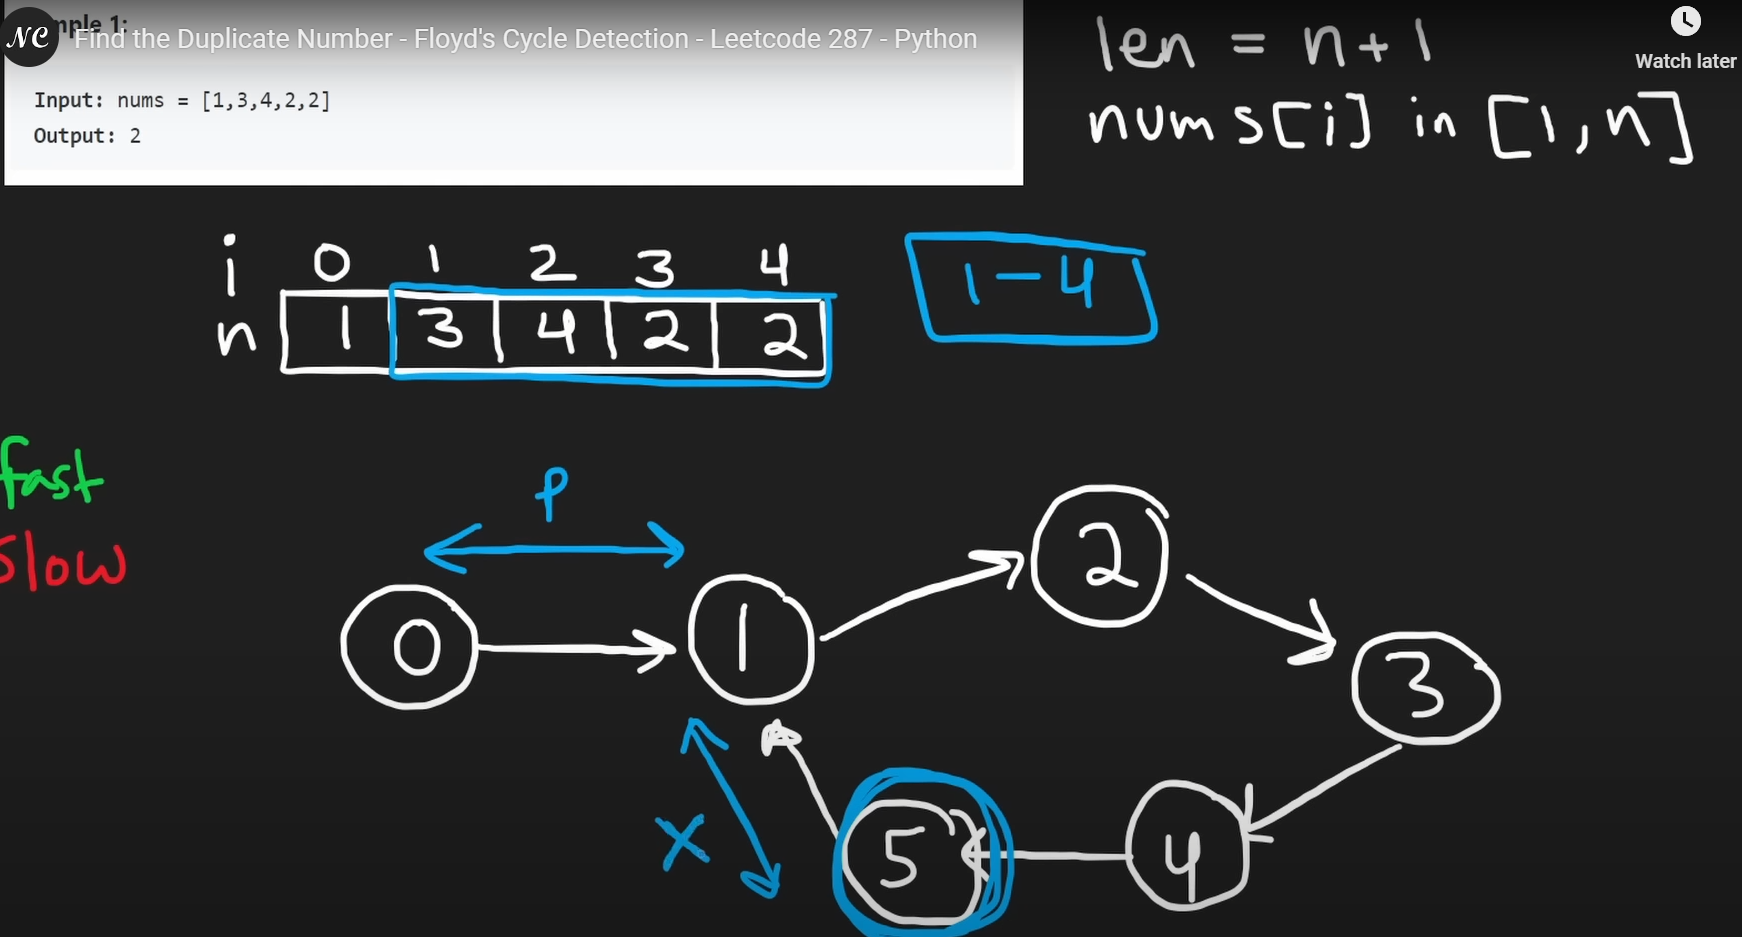 NC
mple 1:
Find the Duplicate Number - Floyd's Cycle Detection - Leetcode 287 - Python
Watch later
Input: nums = [1,3,4,2,2]
Output: 2
len = n+1
nums[i] in [1,n]
i 0 1 2 3 4
n 1 3 4 2 2
1-4
fast
slow
p
0
1
2
3
4
5
x